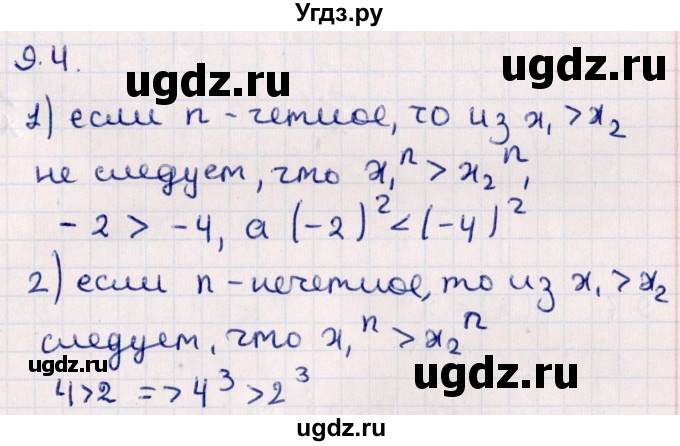 Угдз.ру
9.4.
ugdz.ru ugdz.ru
1) если n - четное, то из x₁ > x₂
не следует, что x₁ⁿ > x₂ⁿ,
ugdz.ru
-2 > -4, а (-2)² < (-4)²
2) если n - нечетное, то из x₁ > x₂
ugdz.ru
следует, что x₁ⁿ > x₂ⁿ
4>2 => 4³ > 2³
ugdz.ru ugdz.ru